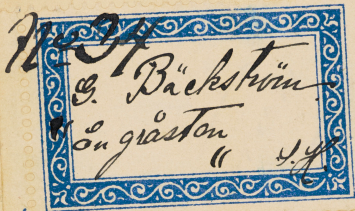 No 34
G. Bäckström.
" En gråsten
" S. H.